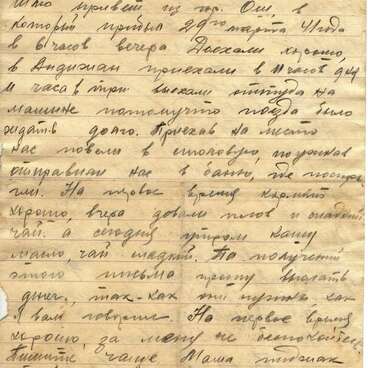 привет из гор. Ош, в
который прибыл 29го марта 41 года
в 6 часов вечера Доехали хорошо,
в Андижан приехали в 11 часов дня
и часа в три выехали оттуда на
машине потомучто поезда было
ждать долго. Приехав на место
нас повели в столовую, поужинав
отправили нас в баню, где постри-
гли. На первое время кормят
хорошо, вчера давали плов и сладкий
чай. а сегодня утром кашу
масло, чай сладкий. По получению
этого письма прошу выслать
денег, так-как они нужны, как
я вам говорил. На первое время
хорошо, за меня не беспокойтесь.
Пишите чаще Мама